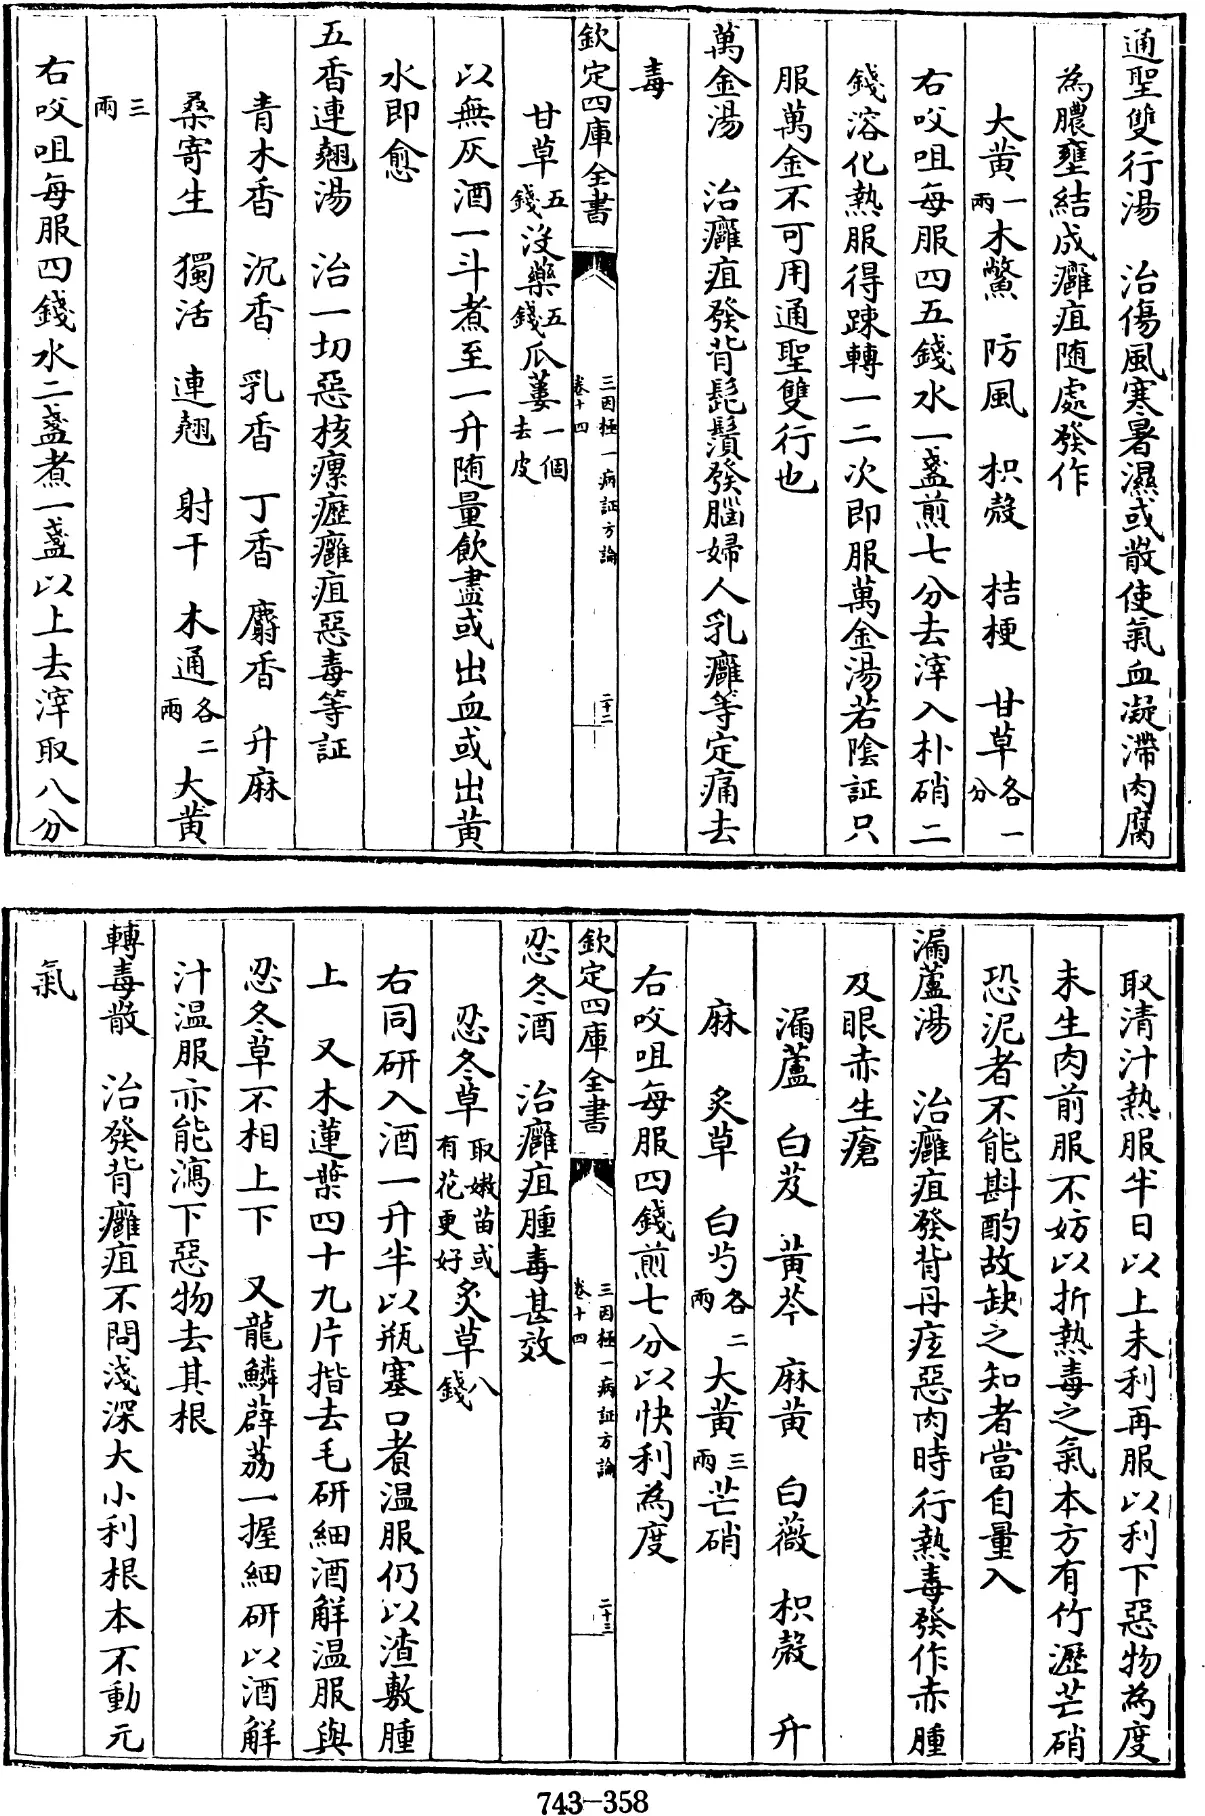 通聖雙行湯　治傷風寒暑濕或散使氣血凝滯肉腐
為膿壅結成癰疽随處發作
大黄一兩木鱉　防風　枳殼　桔梗　甘草各一分
右㕮咀每服四五錢水一盞煎七分去滓入朴硝二
錢溶化熱服得踈轉一二次即服萬金湯若陰証只
服萬金不可用通聖雙行也
萬金湯　治癰疽發背髭鬚發腦婦人乳癰等定痛去
毒
欽定四庫全書　三因極一病証方論　卷十四　二十二
甘草五錢没藥五錢瓜蔞一個去皮
以無灰酒一斗煮至一升随量飲盡或出血或出黄
水即愈
五香連翹湯　治一切惡核瘰癧癰疽惡毒等証
青木香　沉香　乳香　丁香　麝香　升麻
桑寄生　獨活　連翹　射干　木通各二兩大黄
三兩
右㕮咀每服四錢水二盞煮一盞以上去滓取八分
取清汁熱服半日以上未利再服以利下惡物為度
未生肉前服不妨以折熱毒之氣本方有竹瀝芒硝
恐泥者不能斟酌故缺之知者當自量入
漏蘆湯　治癰疽發背丹疰惡肉時行熱毒發作赤腫
及眼赤生瘡
漏蘆　白芨　黄芩　麻黄　白薇　枳殼　升
麻　炙草　白芍各二兩大黄三兩芒硝
右㕮咀每服四錢煎七分以快利為度
欽定四庫全書　三因極一病証方論　卷十四　二十三
忍冬酒　治癰疽腫毒甚效
忍冬草取嫩苗或有花更好炙草八錢
右同研入酒一升半以瓶塞口煮温服仍以渣敷腫
上　又木蓮葉四十九片揩去毛研細酒解温服與
忍冬草不相上下　又龍鱗薜荔一握細研以酒解
汁温服亦能瀉下惡物去其根
轉毒散　治發背癰疽不問淺深大小利根本不動元
氣
743-358